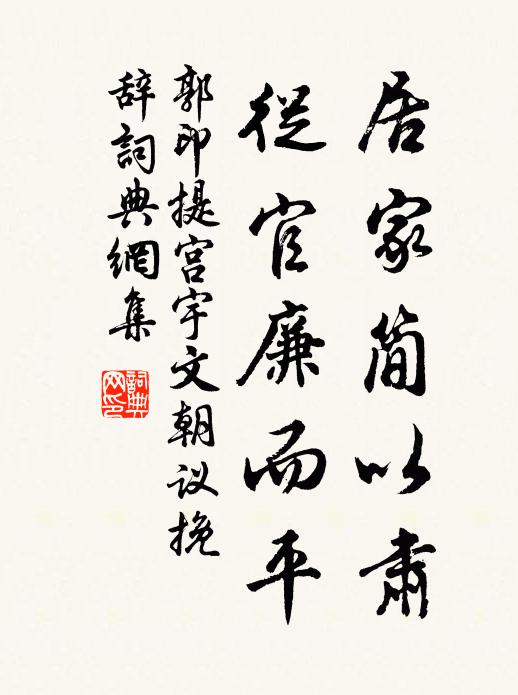 居家简以肅
從官廉而平
郭印提宫宇文朝议挽
辞詞典網集
詞典网印